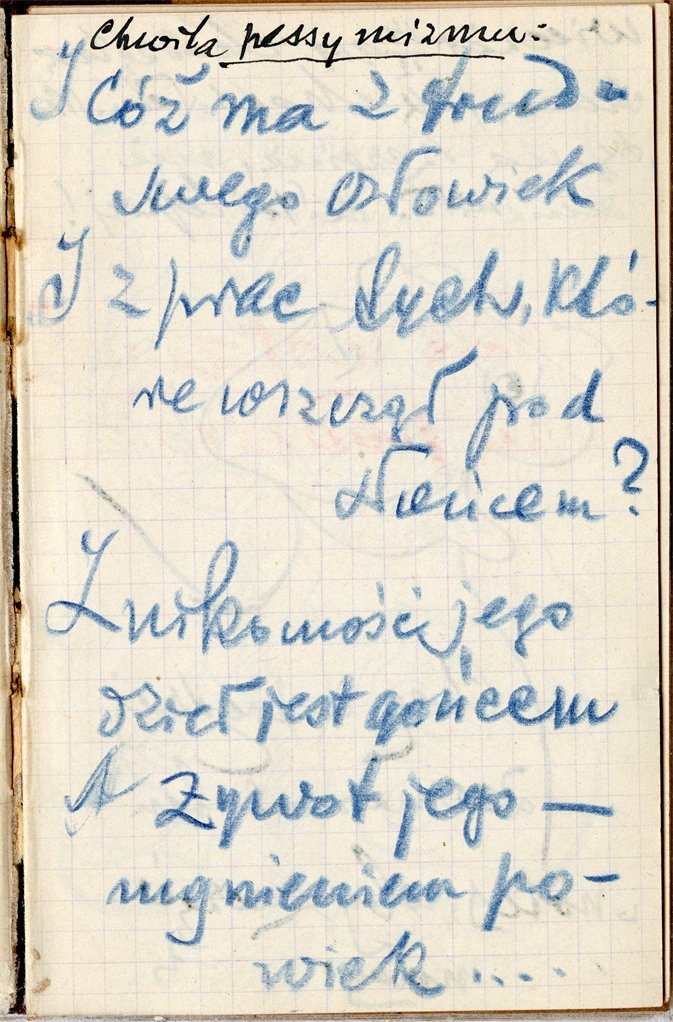 Chwila pessymizmu:
I cóż ma z trudu
swego człowiek
I z prac tych, któ-
re wszczął pod
słońcem?
Znikomości jego
dzieł jest gońcem
A żywot jego —
mgnieniem po-
wiek....